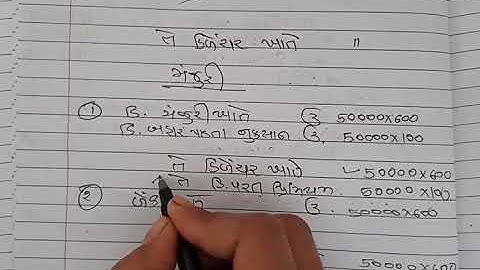 તે ડિબેંચર ખાતે "
મંજુરી
① ડિ. મંજુરી ખાતે ઉ. 50000×600
ડિ. બહાર પાડતા નુકસાન ઉ. 50000×100
તે ડિબેંચર ખાતે 50000×600
તે ડિ. પરત પ્રિમિયમ 50000×100
② બેંક ઉ. 50000×600
50000×600